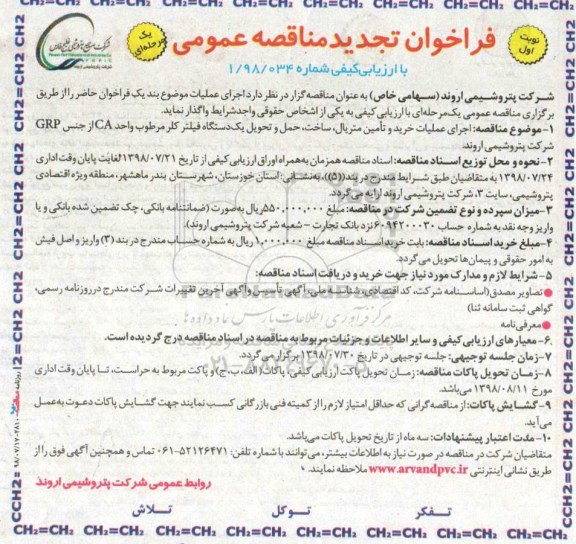 CH2=CH2 CH2=CH2 CH2=CH2 CH2=CH2 CH2=CH2 CH2=CH2 CH2=CH2
نوبت اول
فراخوان تجدید مناقصه عمومی
یک مرحله‌ای
با ارزیابی کیفی شماره ۱/۹۸/۰۳۴
شرکت پتروشیمی اروند (سهامی خاص) به عنوان مناقصه گزار در نظر دارد اجرای عملیات موضوع بند یک فراخوان حاضر را از طریق
برگزاری مناقصه عمومی یک مرحله‌ای با ارزیابی کیفی به یکی از اشخاص حقوقی واجد شرایط واگذار نماید.
۱-موضوع مناقصه: اجرای عملیات خرید و تأمین متریال، ساخت، حمل و تحویل یک دستگاه فیلتر کلر مرطوب واحد CA از جنس GRP
شرکت پتروشیمی اروند.
۲-نحوه و محل توزیع اسناد مناقصه: اسناد مناقصه همزمان به همراه اوراق ارزیابی کیفی از تاریخ ۱۳۹۸/۰۷/۲۱ لغایت پایان وقت اداری
۱۳۹۸/۰۷/۲۴ به متقاضیان طبق شرایط مندرج در بند ((۵))، به نشانی: استان خوزستان، شهرستان بندر ماهشهر، منطقه ویژه اقتصادی
پتروشیمی، سایت ۳، شرکت پتروشیمی اروند ارایه می گردد.
۳-میزان سپرده و نوع تضمین شرکت در مناقصه: مبلغ ۵۵۰,۰۰۰,۰۰۰ ریال به صورت (ضمانتنامه بانکی، چک تضمین شده بانکی و یا
واریز وجه نقد به شماره حساب ۶۰۹۴۲۰۰۰۳۰ نزد بانک تجارت – شعبه شرکت پتروشیمی اروند).
۴-مبلغ خرید اسناد مناقصه: بابت خرید اسناد مناقصه مبلغ ۱,۰۰۰,۰۰۰ ریال به شماره حساب مندرج در بند (۳) واریز و اصل فیش
به امور حقوقی و پیمان‌ها تحویل می گردد.
۵-شرایط لازم و مدارک مورد نیاز جهت خرید و دریافت اسناد مناقصه:
● تصاویر مصدق (اساسنامه شرکت، کد اقتصادی، شناسه ملی، آگهی تأسیس و آگهی آخرین تغییرات شرکت مندرج در روزنامه رسمی،
گواهی ثبت سامانه ثنا)
● معرفی‌نامه
۶-معیارهای ارزیابی کیفی و سایر اطلاعات و جزئیات مربوط به مناقصه در اسناد مناقصه درج گردیده است.
۷-زمان جلسه توجیهی: جلسه توجیهی در تاریخ ۱۳۹۸/۰۷/۳۰ برگزار می گردد.
۸-زمان تحویل پاکات مناقصه: زمان تحویل پاکت ارزیابی کیفی، پاکات (الف، ب، ج) و پاکت مربوط به حراست، تا پایان وقت اداری
مورخ ۱۳۹۸/۰۸/۱۱ می‌باشد.
۹-گشایش پاکات: از مناقصه گرانی که حداقل امتیاز لازم را از کمیته فنی بازرگانی کسب نمایند جهت گشایش پاکات دعوت به عمل
می آید.
۱۰-مدت اعتبار پیشنهادات: سه ماه از تاریخ تحویل پاکات می‌باشد.
متقاضیان شرکت در مناقصه در صورت نیاز به اطلاعات بیشتر، می توانند با شماره تلفن: ۵۲۱۲۶۴۷۱-۰۶۱ تماس و همچنین آگهی فوق را از
طریق نشانی اینترنتی www.arvandpvc.ir ملاحظه نمایند.
روابط عمومی شرکت پتروشیمی اروند
تفکر توکل تلاش
CH2=CH2 CH2=CH2 CH2=CH2 CH2=CH2 CH2=CH2 CH2=CH2 CH2=CH2